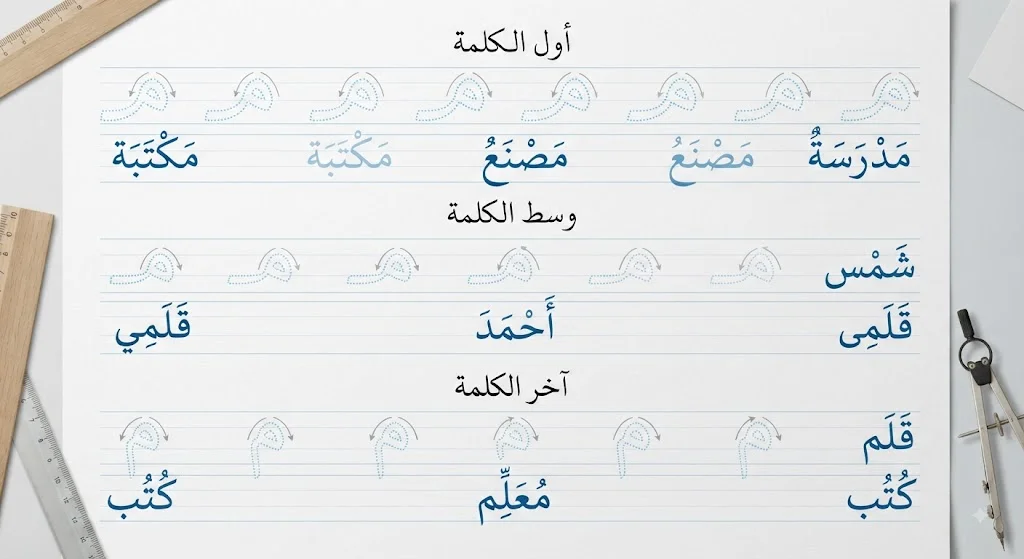 أول الكلمة
مـ مـ مـ مـ مـ مـ مـ مـ
مَدْرَسَةٌ مَصْنَعُ مَصْنَعُ مَكْتَبَة مَكْتَبَة
وسط الكلمة
شَمْس مـ مـ مـ مـ مـ مـ
قَلَمِى أَحْمَدَ قَلَمِي
آخر الكلمة
قَلَم م م م م م م
كُتُب مُعَلِّم كُتُب